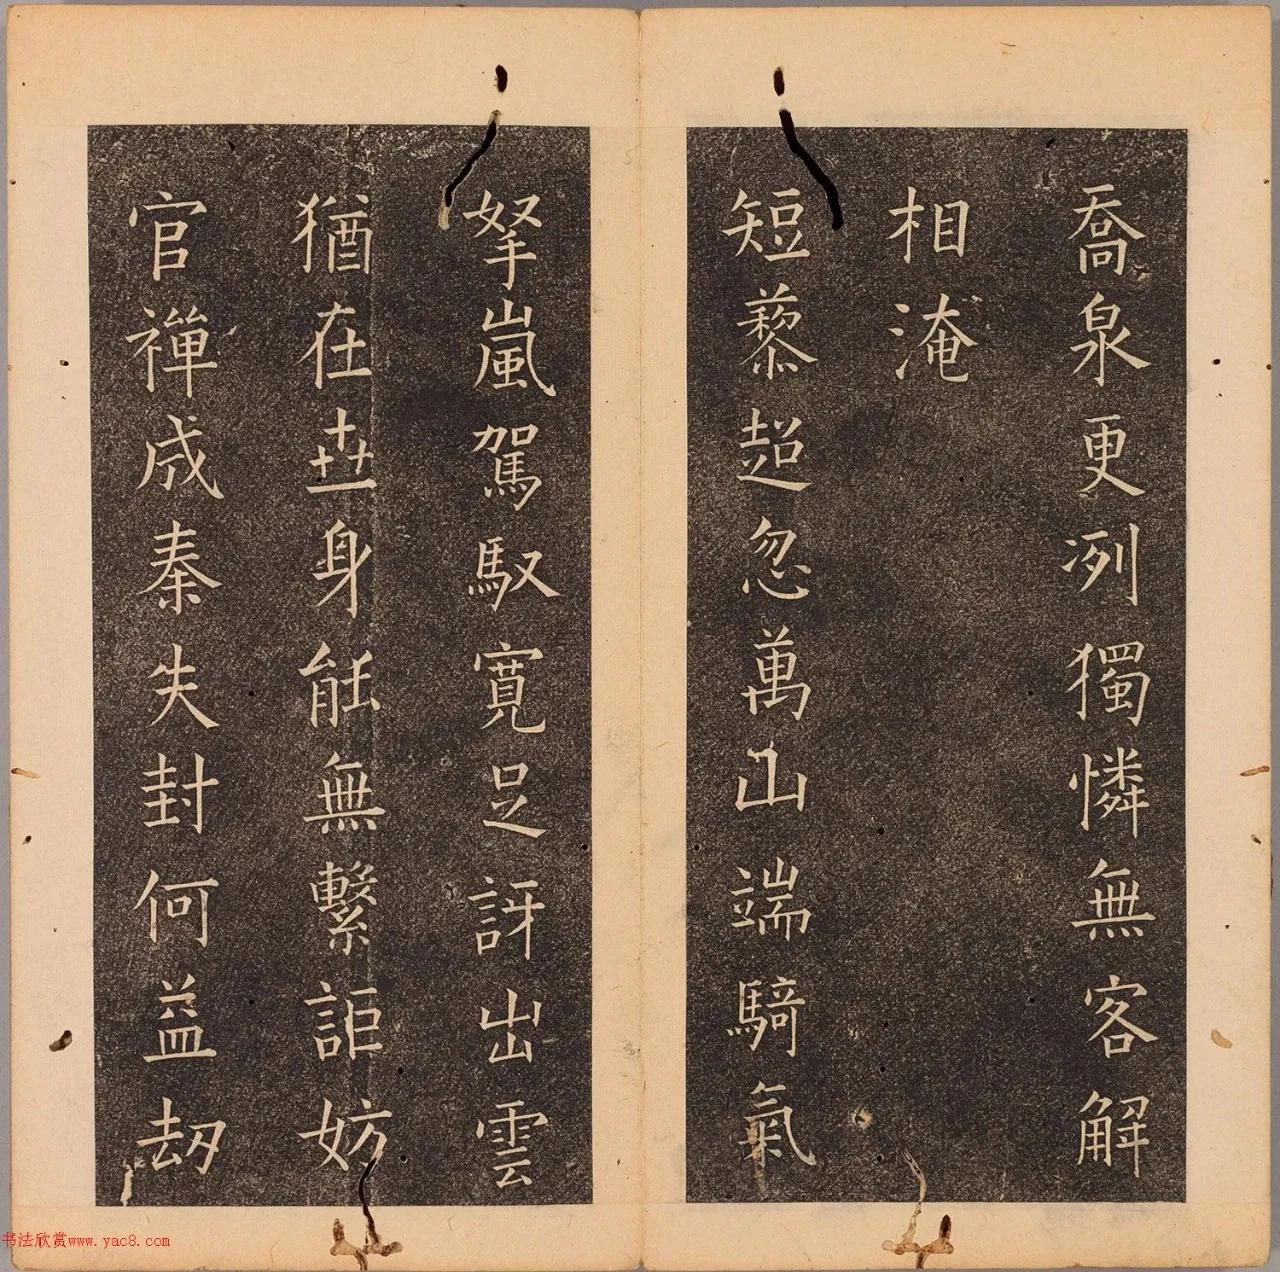 喬泉更冽獨憐無客解
相淹
短藜超忽萬山端騎氣
拏嵐駕馭寬足訝出雲
猶在卋身能無繫詎妨
官禪成秦失封何益刧
书法欣赏www.yac8.com